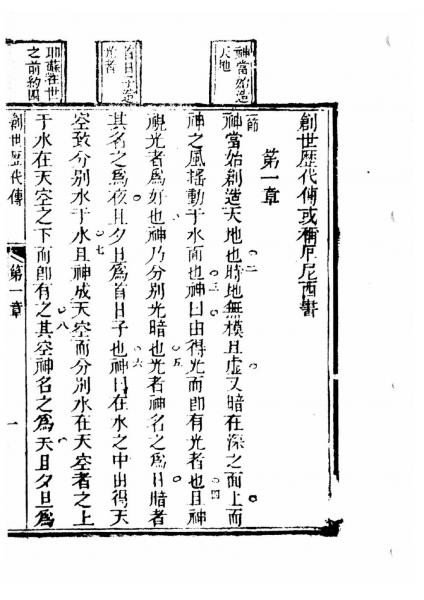 神當始造
天地
首日子造
光者
耶穌在世
之前約四
創世歷代傳或稱厄尼西書
第一章
節
神當始創造天地也二時地無模且虛又暗在深之面上而
神之風搖動于水面也三神曰由得光而即有光者也四且神
視光者為好也神乃分別光暗也五光者神名之為日暗者
其名之為夜且夕旦為首日子也六神曰在水之中由得天
空致分別水于水且七神成天空而分別水在天空者之上
于水在天空之下而即有之八其空神名之為天且夕旦為
創世歷代傳
第一章
一